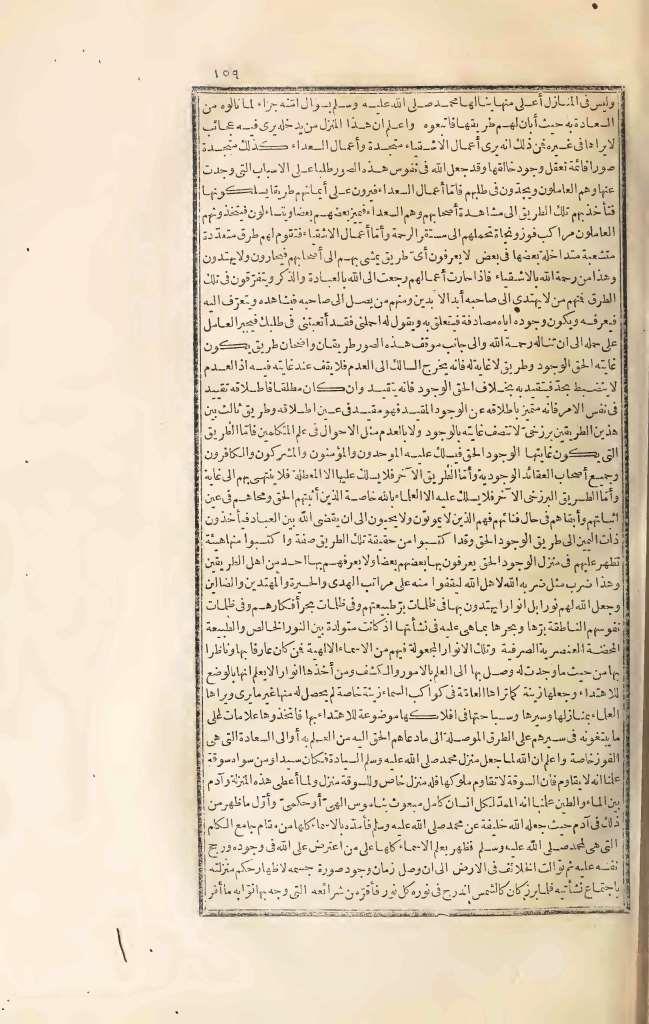 ١٥٩
وليس في المنازل أعلى منها ينالها محمد صلى الله عليه وسلم بسؤال أمته جزاء لما نالوه من
السعادة به حيث أبان لهم طريقها فاتبعوه واعلم ان هذا المنزل من يدخله يرى فيه عجائب
لا يراها في غيره فمن ذلك انه يرى أعمال الاشقياء متجسدة وأعمال السعداء كذلك متجسدة
صورا قائمة تعقل وجود خالقها وقد جعل الله في نفوس هذه الصور طلبا على الاسباب التي وجدت
عنها وهم العاملون ويجدون في طلبهم فاما أعمال السعداء فيرون على أيمانهم طريقا يسلكونها
فتأخذ بهم تلك الطريق الى مشاهدة أصحابهم وهم السعداء فيميز بعضهم بعضا ويتساءلون فيتخذونهم
العاملون مراكب فوز ونجاة تحملهم الى مستقر الرحمة وأما أعمال الاشقياء فتقوم لهم طرق متعددة
متشعبة متداخلة بعضها في بعض لا يعرفون أي طريق يمشي بهم الى أصحابهم فيحارون ولا يهتدون
وهذا من رحمة الله بالاشقياء فاذا حارت أعمالهم رجعت الى الله بالعبادة والذكر ويتفرقون في تلك
الطرق فمنهم من لا يهتدى الى صاحبه أبد الآبدين ومنهم من يصل الى صاحبه فيشاهده ويتعرف اليه
فيعرفه ويكون وجوده اياه مصادفة فيتعلق به ويقول له احملني فقد أتعبتني في طلبك فيجبر العامل
على حمله الى ان تناله رحمة الله والى جانب موقف هذه الصور طريقان واضحان طريق يكون
غايته الحق الوجود وطريق لا غاية له فانه يخرج السالك الى العدم فلا يقف عند غايته فيه اذ العدم
لا ينضبط بحد فيتقيد به بخلاف الحق الوجود فانه يتقيد وان كان مطلقا فاطلاقه تقييد
في نفس الامر فانه متميز باطلاقه عن الوجود المقيد فهو مقيد في عين اطلاقه وطريق ثالث بين
هذين الطريقين برزخي لا تتصف غايته بالوجود ولا بالعدم مثل الاحوال في علم المتكلمين فاما الطريق
التي يكون غايتها الوجود الحق فيسلك عليه الموحدون والمؤمنون والمشركون والكافرون
وجميع أصحاب العقائد الوجودية وأما الطريق الآخر فلا يسلك عليها الا المعطلة فلا ينتهى بهم الى غاية
وأما الطريق البرزخي الآخر فلا يسلك عليه الا العلماء بالله خاصة الذين أثبتهم الحق ومحاهم في عين
اثباتهم وأبقاهم في حال فنائهم فهم الذين لا يموتون ولا يحيون الى ان يقضى الله بين العباد فيأخذون
ذات اليمين الى طريق الوجود الحق وقد اكتسبوا من حقيقة تلك الطريق صفة واكتسبوا منها هيئة
تظهر عليهم في منزل الوجود الحق يعرفون بها بعضهم بعضا ولا يعرفهم بها احد من اهل الطريقين
وهذا ضرب مثل ضربه الله لاهل الله ليقفوا منه على مراتب الهدى والحيرة والمهتدين والضالين
وجعل الله لهم نورا بل أنوارا يهتدون بها في ظلمات بر طبيعتهم وفي ظلمات بحر أفكارهم وفي ظلمات
نفوسهم الناطقة برّها وبحرها بما هي عليه في نشأتها اذ كانت متولدة بين النور الخالص والطبيعة
المحضة العنصرية الصرفية وتلك الانوار المجعولة فيهم من الاسماء الالهية فمن كان عارفا بها وناظرا
بها من حيث ما وجدت له وصل بها الى العلم بالامور والكشف ومن أخذها أنوارا لا يعلم انها بالوضع
للاهتداء وجعلها زينة كما تراها العامة في كواكب السماء زينة خاصة لم يحصل له منها غير ما يرى ويراها
العلماء بمنازلها وسيرها وسباحتها في افلاكها موضوعة للاهتداء بها فاتخذوها علامات على
ما يبتغونه في سيرهم على الطرق الموصلة الى ما دعاهم الحق اليه من العلم به أو الى السعادة التي هي
الفوز خاصة واعلم ان الله لما جعل منزل محمد صلى الله عليه وسلم السيادة فكان سيدا ومن سواه سوقة
علمنا انه لا يقاوم فان السوقة لا تقاوم ملوكها فله منزل خاص وللسوقة منزل ولما أعطى هذه المنزلة وآدم
بين الماء والطين علمنا انه الممد لكل انسان كامل مبعوث بناموس الهي أو حكمي وأول ما ظهر من
ذلك في آدم حيث جعله الله خليفة عن محمد صلى الله عليه وسلم فأمده بالاسماء كلها من مقام جامع الكلم
التي هي لمحمد صلى الله عليه وسلم فظهر بعلم الاسماء كلها على من اعترض على الله في وجوده ورجح
نفسه عليه ثم توالت الخلائف في الارض الى ان وصل زمان وجود صورة جسمه لاظهار حكم منزلته
باجتماع نشأتيه فلما برز كان كالشمس اندرج في نوره كل نور فأقر من شرائعه التي وجه بها نوّابه ما أقر